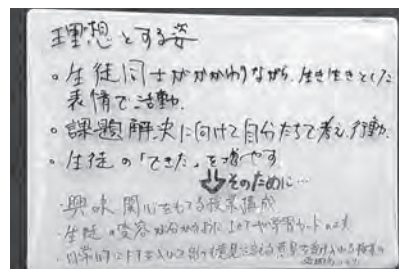 理想とする姿
・生徒同士がかかわりながら、生き生きとした
表情で活動。
・課題解決に向けて自分たちで考え、行動。
・生徒の「できた」を増やす
⇩そのために…
・興味関心をもてる授業構成
・生徒の変容が分かるように 学習カードの工夫
・日常的に 意見 意見を受け入れる授業の